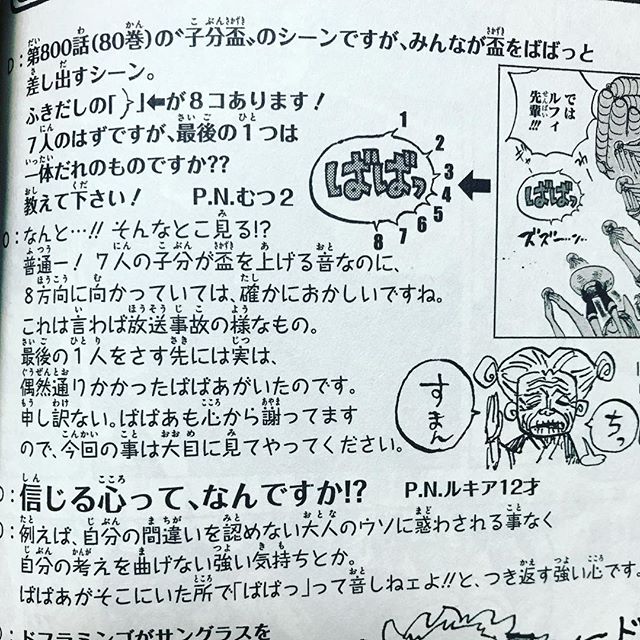 D：第800話(80巻)の〝子分盃〟のシーンですが、みんなが盃をばばっと
差し出すシーン。
ふきだしの「}」⬅が８コあります！
7人のはずですが、最後の１つは
一体だれのものですか??
教えて下さい！ P.N.むつ２
ばばっ
1
2
3
4
5
6
7
8
では
ルフィ
先輩!!!
ばばっ
ズズーン…
O：なんと…!! そんなとこ見る!?
普通ー！ 7人の子分が盃を上げる音なのに、
8方向に向かっていては、確かにおかしいですね。
これは言わば放送事故の様なもの。
最後の１人をさす先には実は、
偶然通りかかったばばあがいたのです。
申し訳ない。ばばあも心から謝ってます
ので、今回の事は大目に見てやってください。
すまん
ちっ
D：信じる心って、なんですか!? P.N.ルキア12才
O：例えば、自分の間違いを認めない大人のウソに惑わされる事なく
自分の考えを曲げない強い気持ちとか。
ばばあがそこにいた所で「ばばっ」って音しねェよ!!と、つき返す強い心です。
D：ドフラミンゴがサングラスを